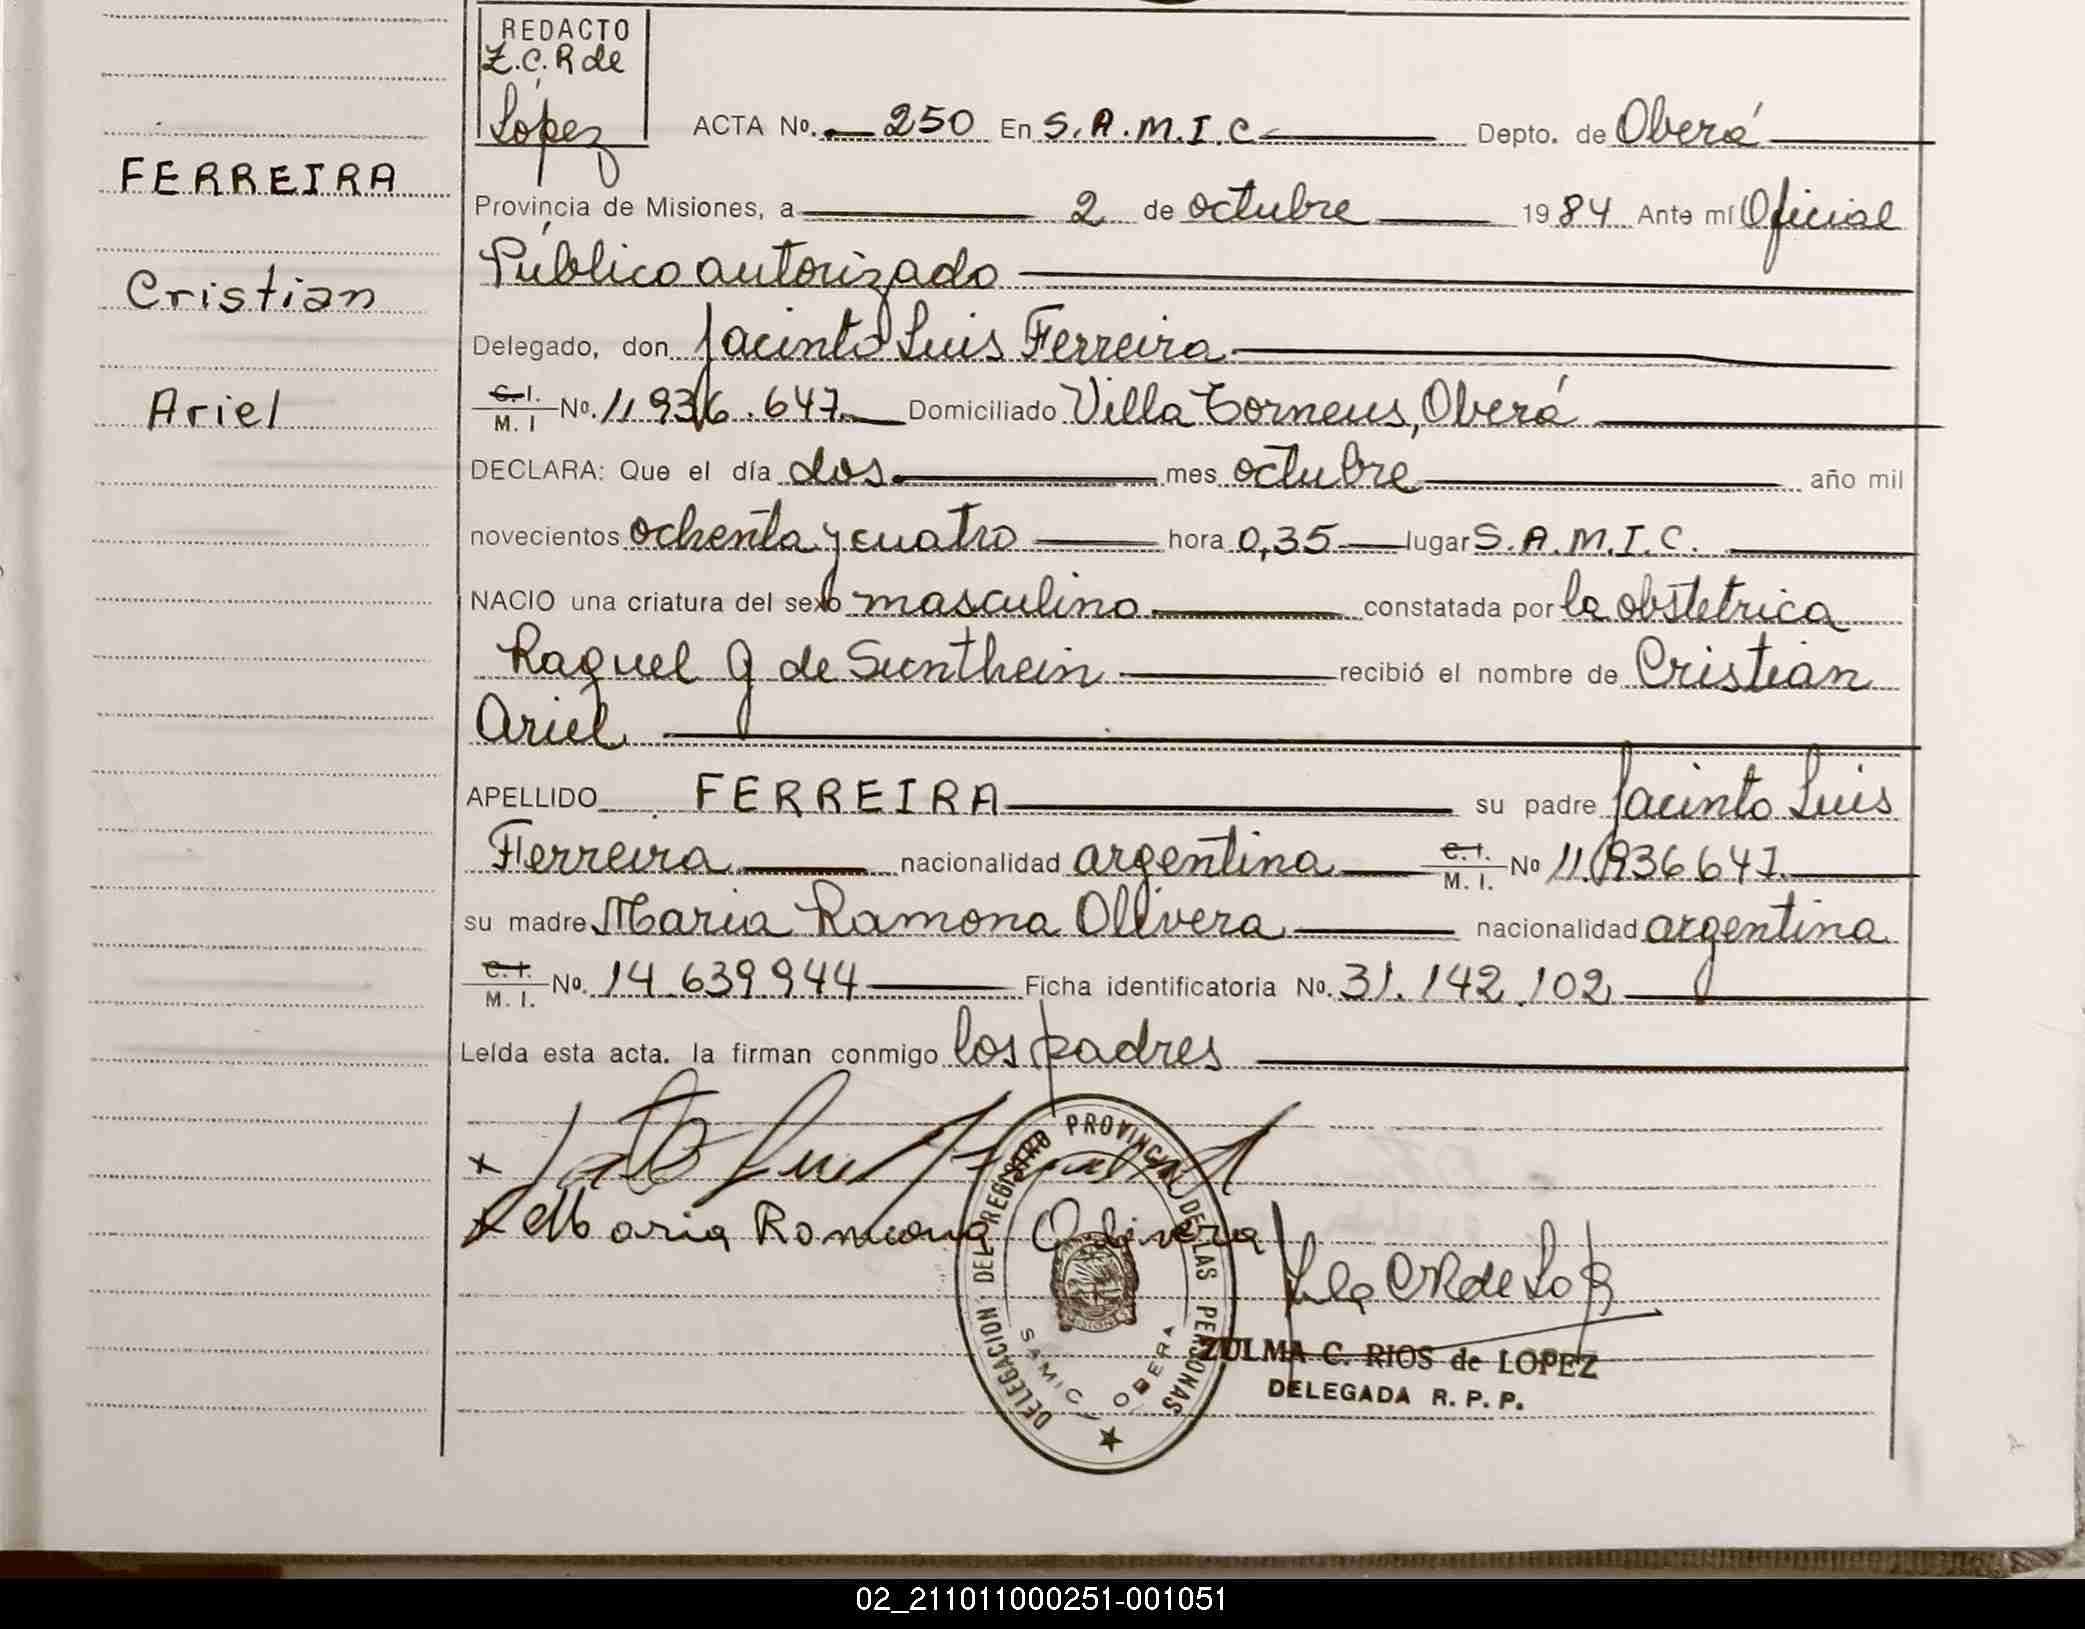 REDACTO
Z.C.R de
López
ACTA No. 250 En S.A.M.I.C. Depto. de Oberá
FERREIRA
Provincia de Misiones, a 2 de octubre 1984 Ante mí Oficial
Público autorizado
Cristian
Delegado, don Jacinto Luis Ferreira
Ariel
C.I. M.I No. 11.936.647 Domiciliado Villa Torneus, Oberá
DECLARA: Que el día dos mes octubre año mil
novecientos ochenta y cuatro hora 0,35 lugar S.A.M.I.C.
NACIO una criatura del sexo masculino constatada por la obstetrica
Raquel G de Sunthein recibió el nombre de Cristian
Ariel
APELLIDO FERREIRA su padre Jacinto Luis
Ferreira nacionalidad argentina C.I. M.I. No 11.936647
su madre Maria Ramona Olivera nacionalidad argentina
C.I. M.I. No. 14.639.944 Ficha identificatoria No. 31.142.102
Leída esta acta. la firman conmigo los padres
Maria Ramona Olivera
DELEGACION DEL REGISTRO PROVINCIAL DE LAS PERSONAS
SAMIC OBERA
MISIONES
ZULMA C. RIOS de LOPEZ
DELEGADA R. P. P.
02_211011000251-001051